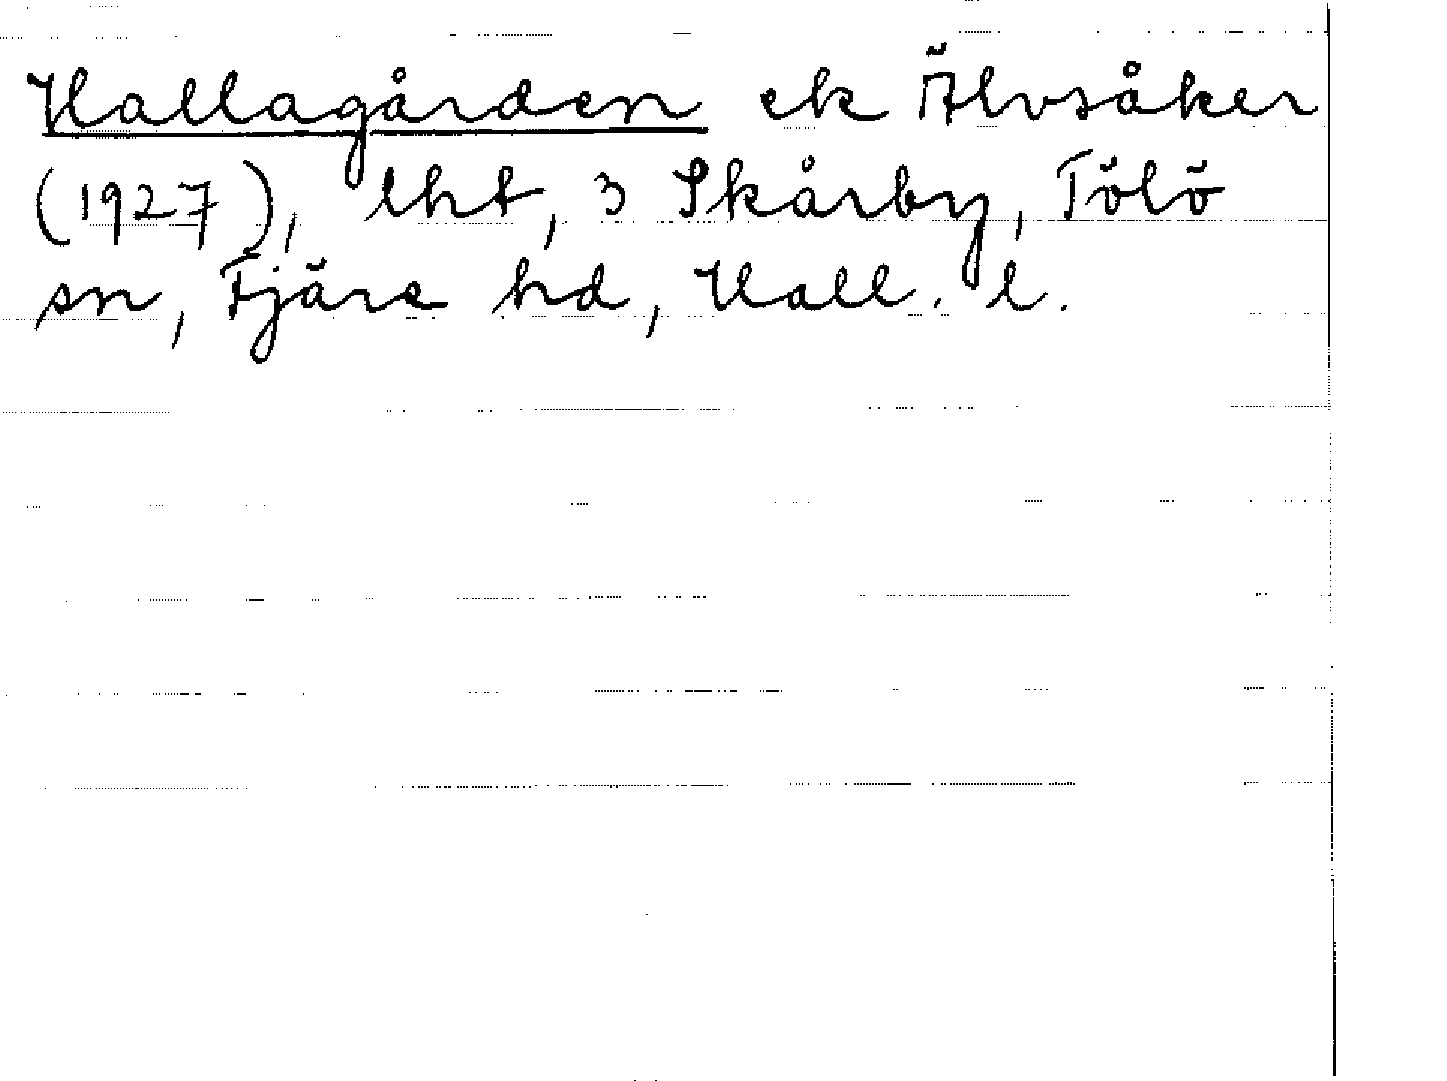 Hallagården ek Älvsåker
(1927), lht, 3 Skårby, Tölö
sn, Fjäre hd, Hall. l.